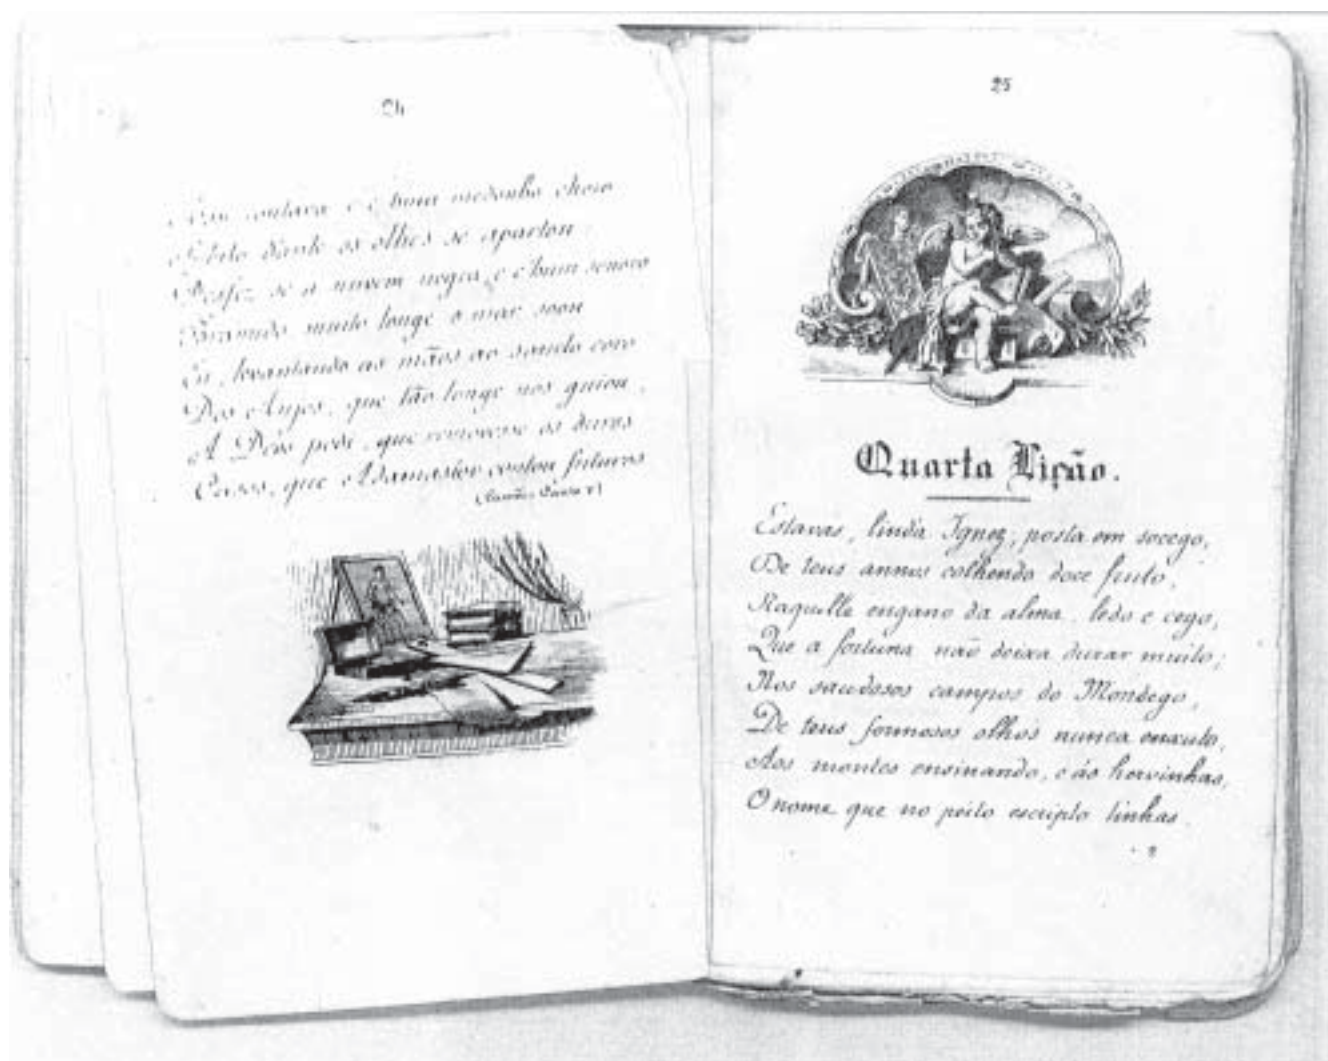 24
contava e c'hum medonho choro
Subito d'ante os olhos se apartou
Desfez-se a nuvem negra, e c'hum sonoro
Bramido muito longe o mar soou
Eu, levantando as mãos ao sancto coro
Dos Anjos, que tão longe nos guiou,
A Deos pedi, que removesse os duros
Casos, que Adamastor contou futuros
(Camões Canto V)
25
Quarta Lição.
Estavas, linda Ignez, posta em socego,
De teus annos colhendo doce fruto,
Naquelle engano da alma, ledo e cego,
Que a fortuna não deixa durar muito;
Nos saudosos campos do Mondego,
De teus formosos olhos nunca enxuto,
Aos montes ensinando, e ás hervinhas,
O nome que no peito escripto tinhas.